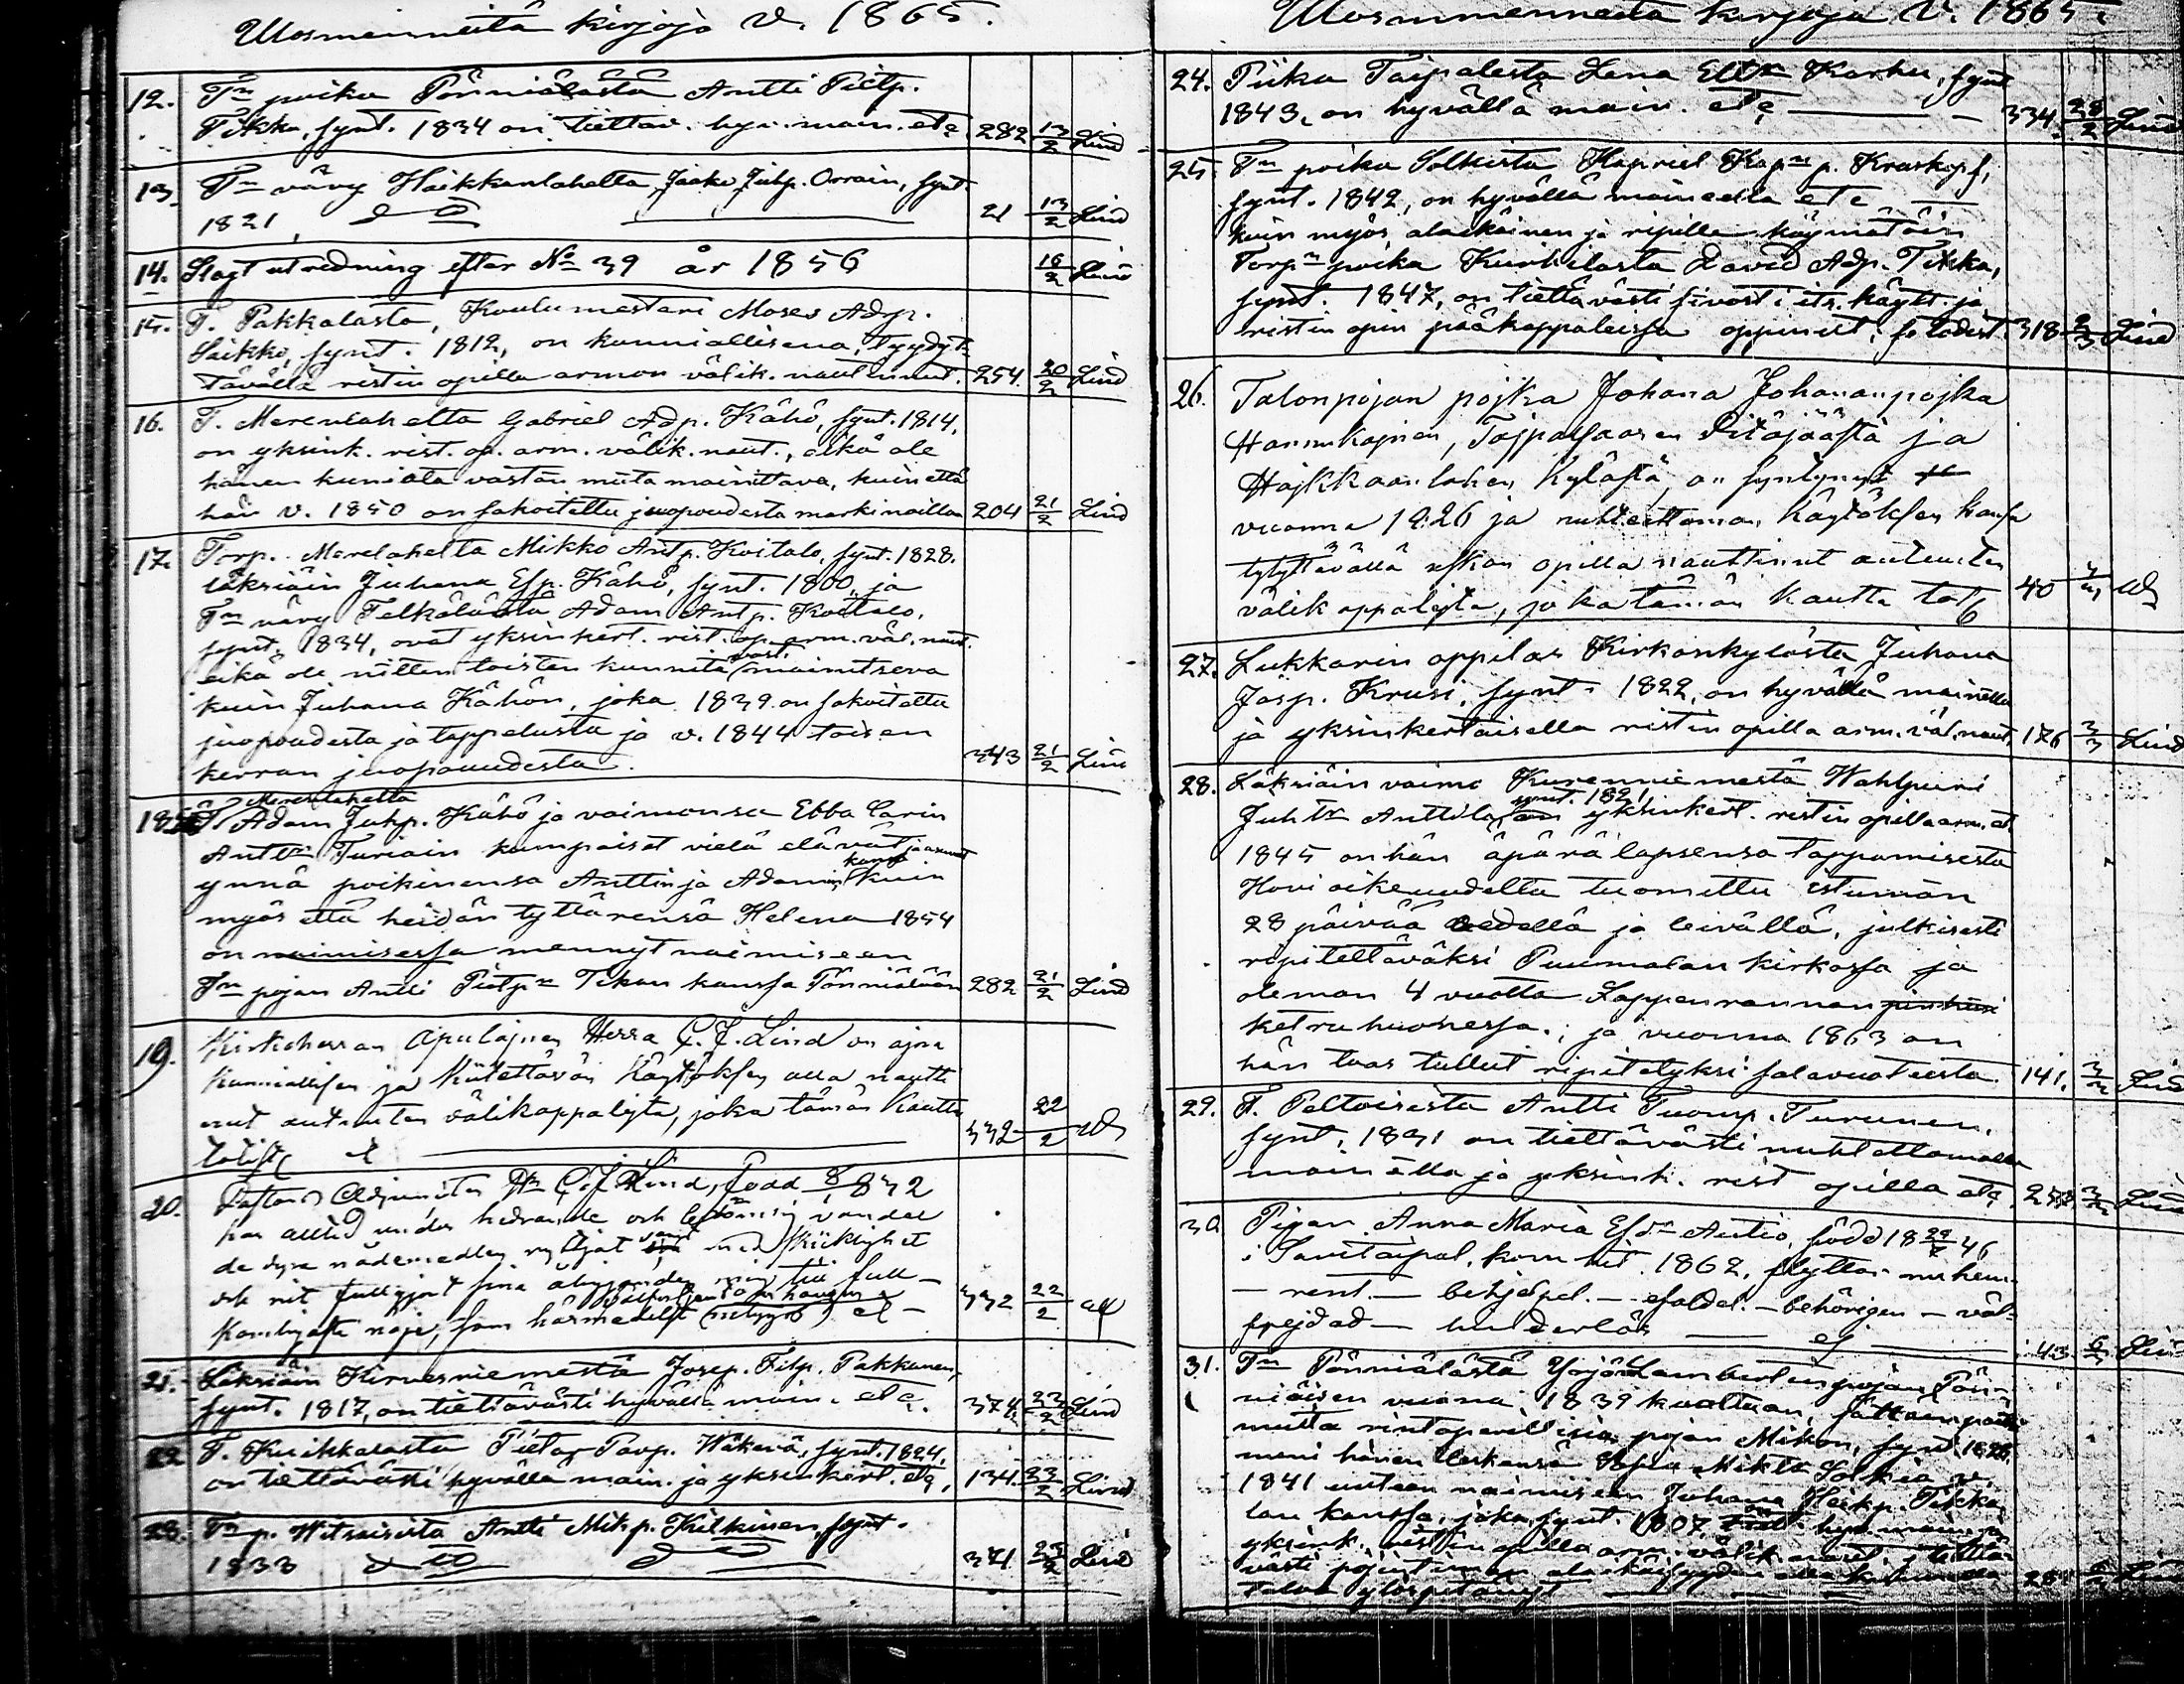 Uosmenneitä kirjoja v. 1865.
12. Tn poika Pönniälästä Antti Pietp.
Tikka, synt. 1834 on tiettäv. hyv. main. etc. 282 13/2 Lind
13. Tn vävy Haikkanlahelta Jaako Juhp. Orrain, synt.
1821, do 21 13/2 Lind
14. Slagtutredning efter No 39 år 1856 16/2 Lind
15. T. Pakkalasta, Koulumestari Moses Adp.
Säikkö, synt. 1812, on kunniallisena, tyydyt-
tävällä ristin opilla armon välik. nautinnut. 254. 20/2 Lind
16. T. Merenlahelta Gabriel Adp. Kähö, synt. 1814,
on yksink. rist. op. arm. välik. naut., eikä ole
hänen kuniata vastan mitä mainittava, kuin että
hän v. 1850 on sakoitettu juopoudesta markinoilla 204 21/2 Lind
17. Torp. Merelahelta Mikko Antp. Koitalo, synt. 1828.
läksiäin Juhana Esp. Kähö, synt. 1800, ja
Tn vävy Telkälästä Adam Antp. Koitalo,
synt. 1834, ovat yksinkert. rist. op. arm. väl. naut.
eikä ole nitten toisten kunnita vast. mainitseva
kuin Juhana Kähön, joka 1839 on sakoitettu
juopoudesta ja tappelusta ja v. 1844 toisen
kerran juopouudesta. 343 21/2 Lind
18. T. Merenlahelta
Adam Juhp. Kähö ja vaimonsa Ebba Carin
Anttr Turiain kumpaiset vielä elävät ja asuvat
ynnä poikinensa Anttin ja Adamin kanss kuin
myös että heidän tyttärensä Helena 1854
on naimisessa mennyt naimiseen
Tn pojan Antti Pietpn Tikan kanssa Pönniälään 282 21/2 Lind
19. Kirkoherran Apulajnen Herra C. J. Lind on ajna
kunniallisen ja kiitettävän käytöksen alla nautti
nut autuuten välikappalejta, joka tämän kautta
332 22/2
20. Pastors Adjuncten Hr C. J. Lind, född 1832
har alltid under hedrande och berömlig vandel
de dyra nådemedlen nyttjat samt med skicklighet
och nit fullgjort sina åligganden mig till full-
komligaste nöje, som härmedelst 332 22/2
21. Läksiäin Kirvesniemestä Josep. Filp. Pakkanen,
synt. 1817, on tiettävästi hyvällä main. etc. 374 23/2 Lind
22 T. Kuikkalasta Pietar Pavp. Wäkevä, synt. 1824,
on tiettävästi hyvällä main. ja yksinkert. etc. 134. 23/2 Lind
23. Tn p. Witsaisista Antti Mikp. Kilkinen, synt.
1833 do do 371 23/2 Lind
Uosmenneitä kirjoja V. 1865.
24. Piika Taipalesta Lena Eltr Karhu, synt
1843, on hyvällä main. etc 334. 28/2 Lind
25. Tn poika Solkista Kapriel Kapn p. Kraskopf,
synt. 1842, on hyvällä maineella etc
kuin myös alaikäinen ja ripille käymätöin
Torpn poika Kurhilasta David Adp. Tikka,
synt. 1847, on tiettävästi sivost. its. käytt. ja
ristin opin pääkappaleissa oppinut; se todist. 318 2/3 Lind
26. Talonpojan pojka Johana Johananpojka
Hannukajnen, Tajpalsaaren Pitäjäästä ja
Hajkkaanlahen Kylästä, on syntynyt
vuonna 1826 ja nuhteettoman käytöksen kansa
tytyttävällä uskon opilla nauttinut autuuten
välikappalejta, joka tämän kautta 40 3/3
27. Lukkarin oppilas Kirkonkylästä Juhana
Josp. Krusi, synt. 1822, on hyvällä mainella
ja yksinkertaisella ristin opilla arm. väl. naut. 176 3/3 Lind
28. Läksiäin vaimo Kurenniemestä Wahlpuri
Juhtr Anttila, synt. 1821, on yksinkert. ristin opilla arm. et.
1845 on hän äpärä lapsensa tappamisesta
Hovi oikeuudelta tuomittu istuman
28 päivää vedellä ja leivällä, julkisesti
ripitettäväksi Puumalan kirkossa ja
oleman 4 vuotta Lappenrannan
ketruhuonessa; ja vuonna 1863 on
hän taas tullut ripitetyksi salavuoteesta. 141. 3/3 Lind
29. T. Peltoisista Antti Tuomp. Turunen,
synt. 1831 on tiettävästi nuhtettomalla
mainella ja yksink. rist opilla etc 3/3 Lind
30. Pigan Anna Maria Esdr Autio, född 1846
i Savitaipal, kom hit 1862, flyttar nu hem
— rent. — behjelpl. — — behörigen — väl-
frejdad — hinderlös — 43. 6/3 Lind
31. Tn Pönniälästä Yrjö Lambertinpojan Pön-
niäisen vuona 1839 kuoltuan,
mutta rintaperillisiä pojan Mikon, synt. 1828
meni hänen leskensä Sofia Miktr Solkia v.
1841 uuteen naimiseen Juhana Heikp. Tikka
lan kanssa, joka, synt. 1807, on hyv. main. ja
yksink. ristin opilla arm. välik. naut. ja tiettä-
västi alaikäisyyden
talon ylöspitänyt Lind